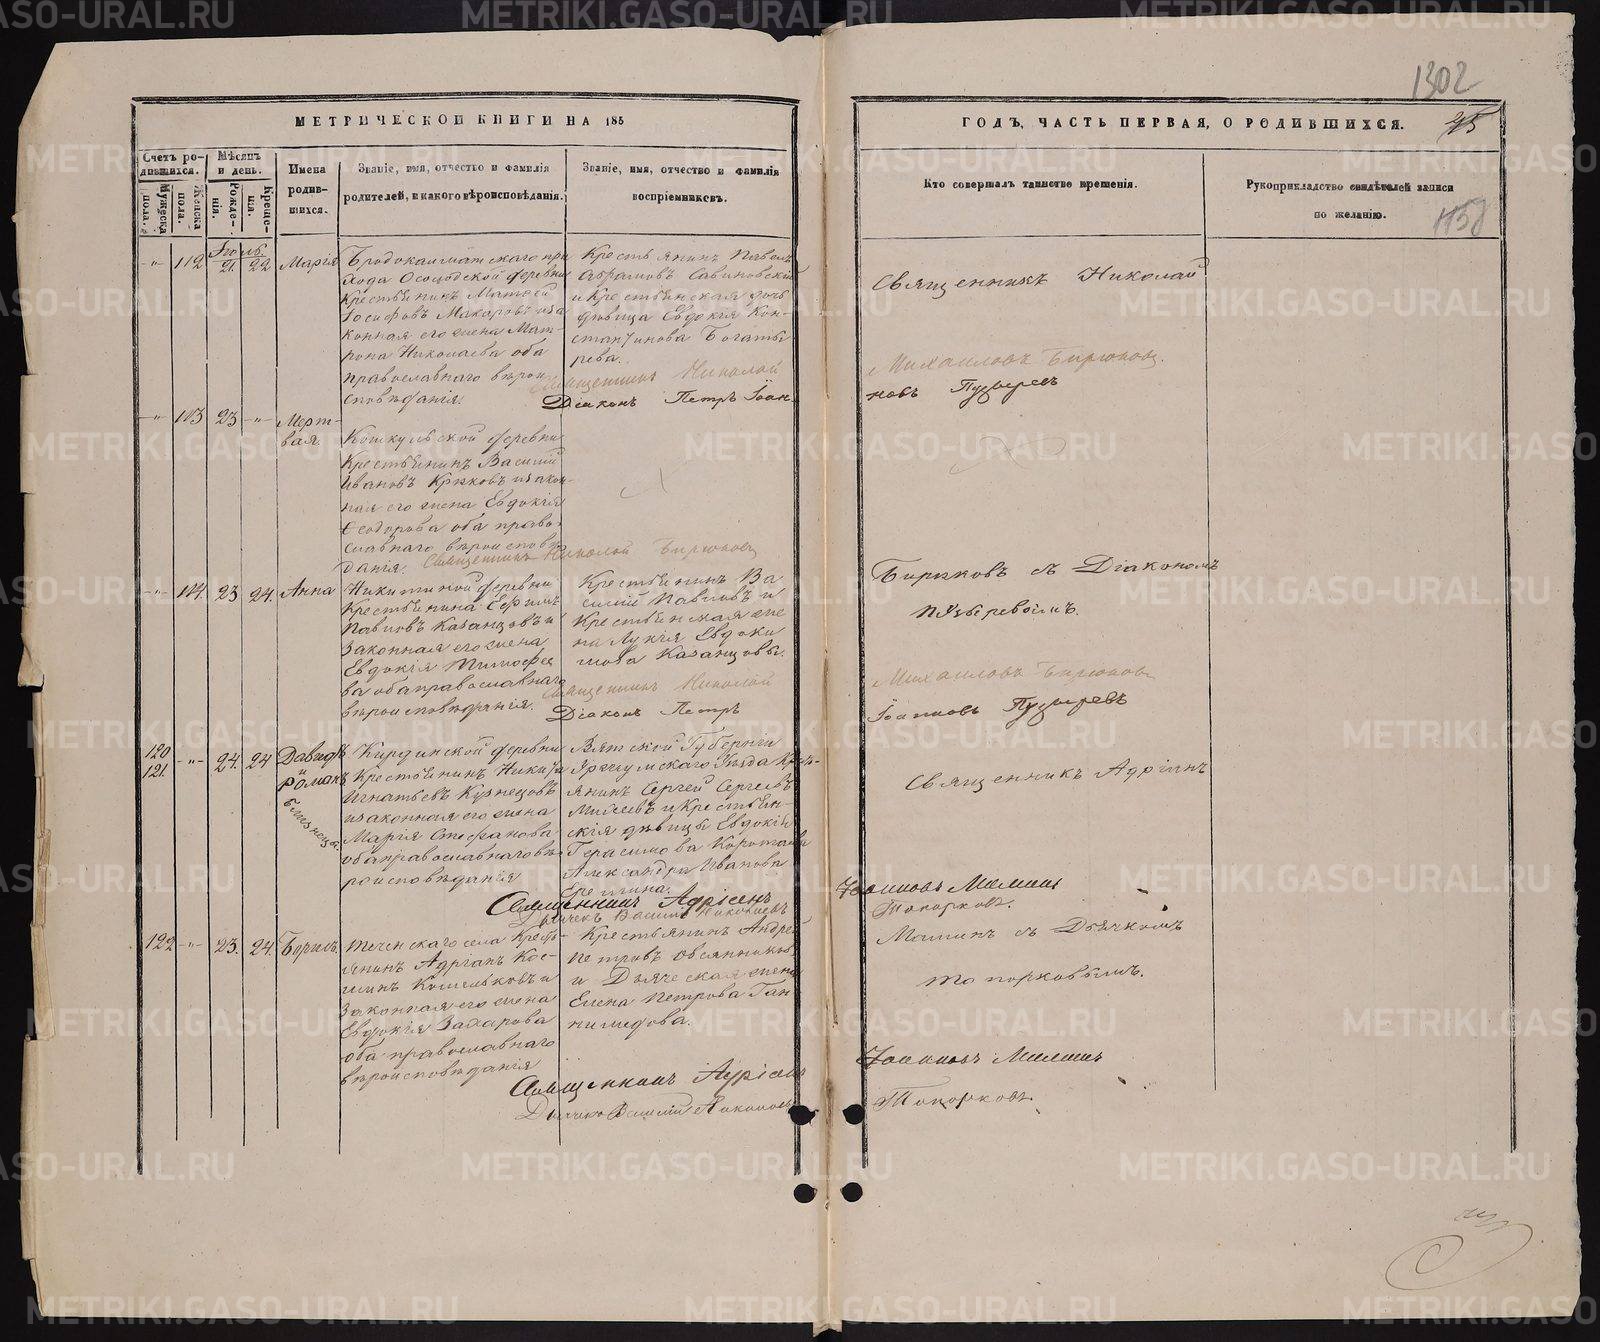 1302
МЕТРИЧЕСКОЙ КНИГИ НА 185
ГОДЪ, ЧАСТЬ ПЕРВАЯ, О РОДИВШИХСЯ.
Счетъ ро-
дившихся.
Мужеска пола.
Женска пола.
Мѣсяцъ
и день.
Рожде-
нія.
Креще-
нія.
Имена
родив-
шихся.
Званіе, имя, отчество и фамилія
родителей, и какого вѣроисповѣданія.
Званіе, имя, отчество и фамилія
воспріемниковъ.
Кто совершалъ таинство крещенія.
Рукоприкладство свидѣтелей записи
по желанію.
1158
Іюль
112 21. 22 Марія
Бродокалмацкаго при
хода Осолодской деревни
Крестьянинъ Матвей
Іосифовъ Макаровъ и за
конная его жена Мат-
рона Николаева оба
православнаго вѣрои
споведанія.
Крестьянинъ Павелъ
Абрамовъ Савиновскій
и Крестьянская дочь
дѣвица Евдокія Кон-
стантинова Богаты
рева.
Священникъ Николай
Священникъ Николай
Михаиловъ Бирюковъ.
Діаконъ Петръ Іоан
новъ Пузыревъ
113 23 Мерт-
вая
Кошкульской деревни
Крестьянинъ Василій
Ивановъ Крюковъ и закон-
ная его жена Евдокія
Ѳедорова оба право
славнаго вѣроисповѣ
данія.
Священникъ Николай Бирюковъ
114. 23 24. Анна
Никитиной деревни
Крестьянина Ефимъ
Павловъ Казанцовъ и
Законная его жена
Евдокія Тимофее
ва оба православнаго
вѣроисповѣданія.
Крестьянинъ Ва
силій Павловъ и
Крестьянская же
на Лукія Евдоки
мова Казанцовы.
Бирюковъ съ Діакономъ
Пузыревымъ.
Священникъ Николай
Михаиловъ Бирюковъ
Діаконъ Петръ
Іоанновъ Пузыревъ
120
121. 24. 24 Давидъ
и
Романъ
близнецы
Кирдинской деревни
Крестьянинъ Никита
Игнатьевъ Кузнецовъ
и законная его жена
Марія Стефанова
оба православнаго вѣ
роисповѣданія
Вятской Губерніи
Уржумскаго Уѣзда Крест-
янинъ Сергей Сергеевъ
Михеевъ и Крестьян-
скія дѣвицы Евдокія
Герасимова
Александра Иванова
Еремина.
Священникъ Адріанъ
Священникъ Адріанъ
Іоанновъ Маминъ
Дьячекъ Василій Никоновъ
Топорковъ.
122 23. 24. Борисъ.
Теченскаго села Кресть-
янинъ Адріанъ Кос-
минъ Кошельковъ и
Законная его жена
Евдокія Захарова
оба православнаго
вѣроисповѣданія
Крестьянинъ Андрей
Петровъ Овсянников
и Дьяческая жена
Елена Петрова Ган
нимедова.
Маминъ съ Дьячкомъ
Топорковымъ.
Священникъ Адріанъ
Іоанновъ Маминъ
Дьячекъ Василій Никоновъ
Топорковъ.